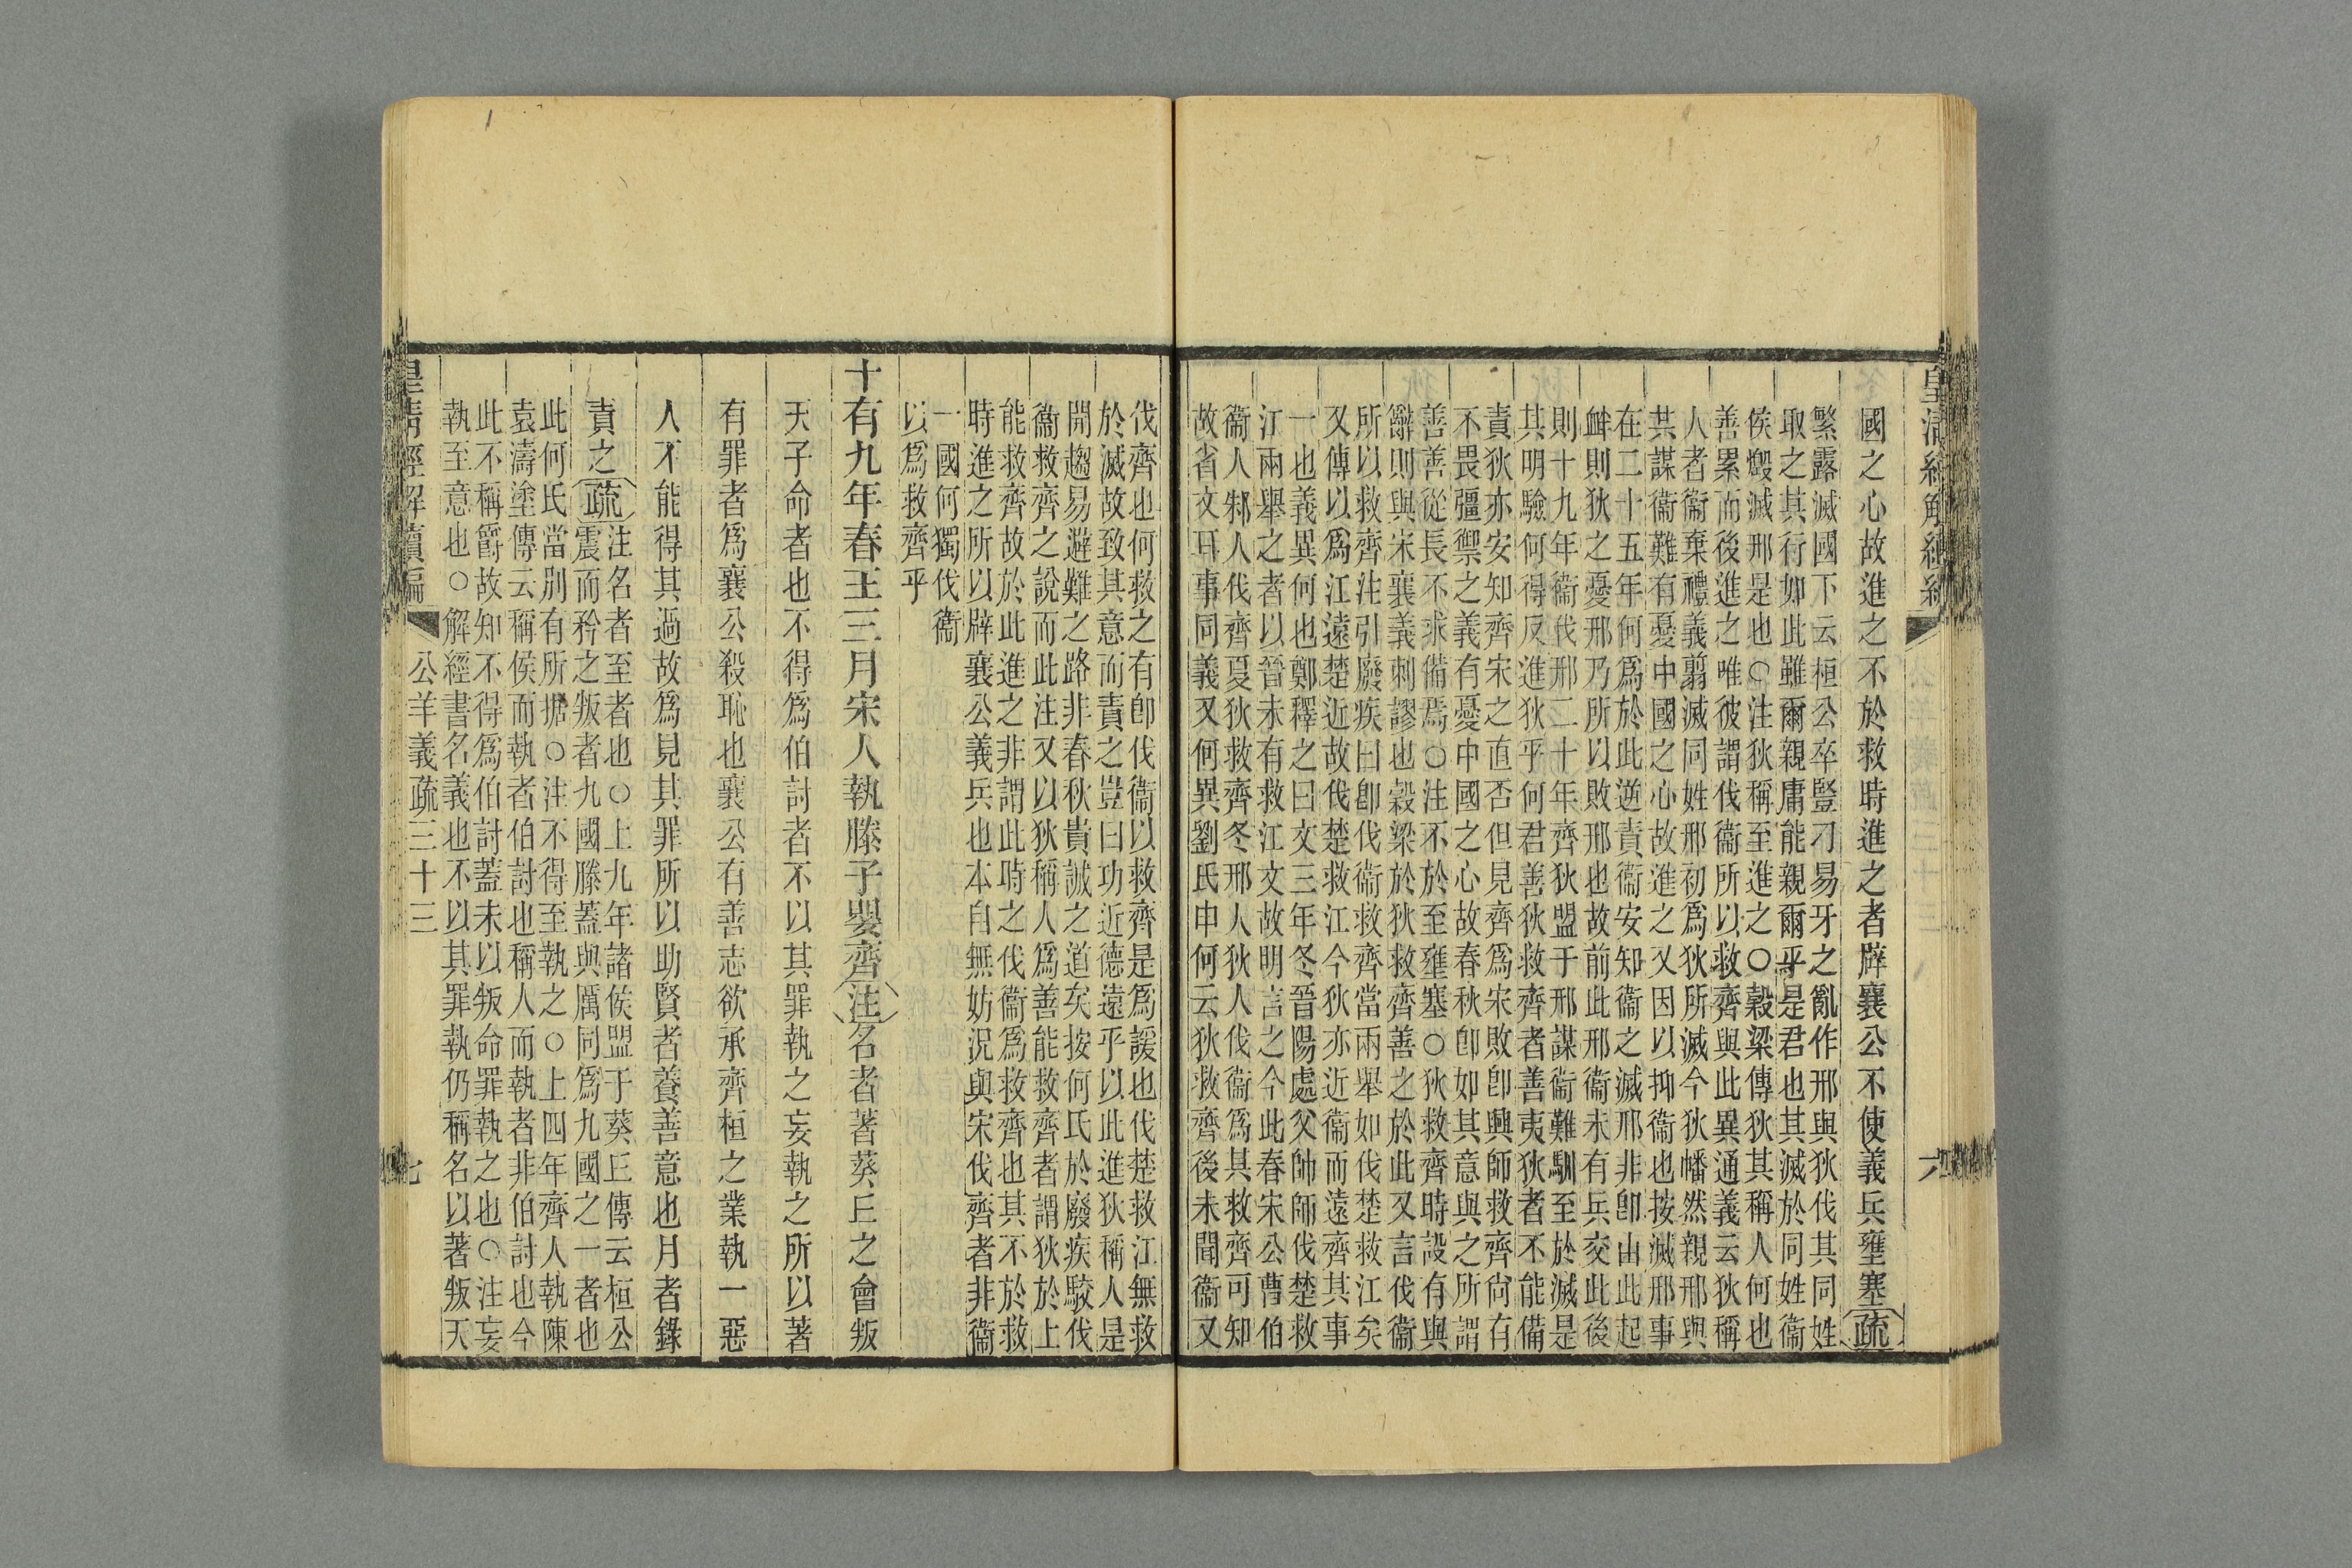 皇清經解續編
六
國之心故進之不於救時進之者辟襄公不使義兵壅塞疏
繁露滅國下云桓公卒豎刁易牙之亂作邢與狄伐其同姓
取之其行如此雖爾親庸能親爾乎是君也其滅於同姓衞
侯燬滅邢是也○注狄稱至進之○穀梁傳狄其稱人何也
善累而後進之唯彼謂伐衞所以救齊與此異通義云狄稱
人者衞棄禮義翦滅同姓邢初爲狄所滅今狄幡然親邢與
其謀衞難有憂中國之心故進之又因以抑衞也按滅邢事
在二十五年何爲於此逆責衞安知衞之滅邢非卽由此起
衅則狄之憂邢乃所以敗邢也故前此邢衞未有兵交此後
則十九年衞伐邢二十年齊狄盟于邢謀衞難馴至於滅是
其明驗何得反進狄乎何君善狄救齊者善夷狄者不能備
責狄亦安知齊宋之直否但見齊爲宋敗卽興師救齊尙有
不畏彊禦之義有憂中國之心故春秋卽如其意與之所謂
善善從長不求備焉○注不於至壅塞○狄救齊時設有與
辭則與宋襄義刺謬也穀梁於狄救齊善之於此又言伐衞
所以救齊注引廢疾曰卽伐衞救齊當兩舉如伐楚救江矣
又傳以爲江遠楚近故伐楚救江今狄亦近衞而遠齊其事
一也義異何也鄭釋之曰文三年冬晉陽處父帥師伐楚救
江兩舉之者以晉未有救江文故明言之今此春宋公曹伯
衞人邾人伐齊夏狄救齊冬邢人狄人伐衞爲其救齊可知
故省文耳事同義又何異劉氏申何云狄救齊後未聞衞又
伐齊也何救之有卽伐衞以救齊是爲諼也伐楚救江無救
於滅故致其意而責之豈曰功近德遠乎以此進狄稱人是
開趨易避難之路非春秋貴誠之道矣按何氏於廢疾駮伐
衞救齊之說而此注又以狄稱人爲善能救齊者謂狄於上
能救齊故於此進之非謂此時之伐衞爲救齊也其不於救
時進之所以辟襄公義兵也本自無妨況與宋伐齊者非衞
一國何獨伐衞
以爲救齊乎
十有九年春王三月宋人執滕子嬰齊注名者著葵丘之會叛
天子命者也不得爲伯討者不以其罪執之妄執之所以著
有罪者爲襄公殺恥也襄公有善志欲承齊桓之業執一惡
人不能得其過故爲見其罪所以助賢者養善意也月者錄
責之疏注名者至者也○上九年諸侯盟于葵丘傳云桓公
震而矜之叛者九國滕蓋與厲同爲九國之一者也
此何氏當別有所據○注不得至執之○上四年齊人執陳
袁濤塗傳云稱侯而執者伯討也稱人而執者非伯討也今
此不稱爵故知不得爲伯討蓋未以叛命罪執之也○注妄
執至意也○解經書名義也不以其罪執仍稱名以著叛天
皇清經解續編
公羊義疏三十三
七